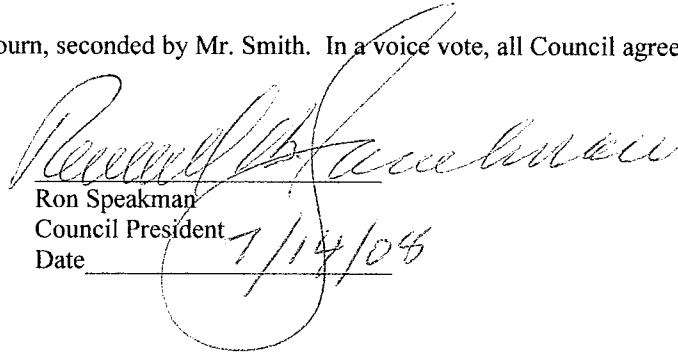 ourn, seconded by Mr. Smith. In a voice vote, all Council agree
Ronald Speakman
Ron Speakman
Council President
Date 7/14/08